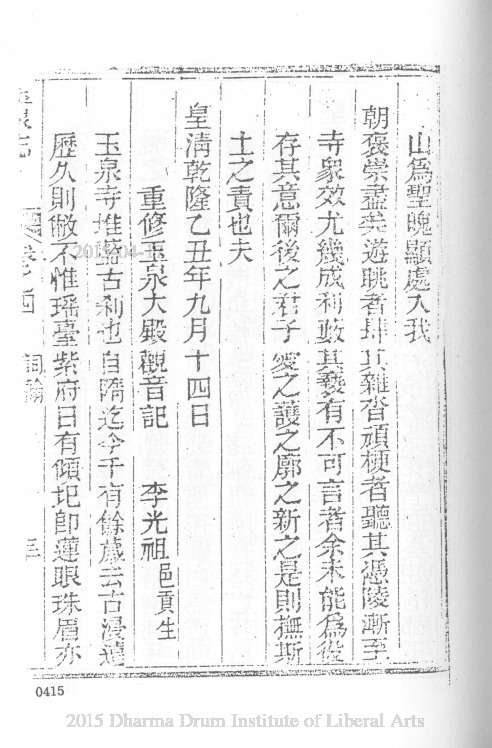 山為聖魄顯處入我
朝褒崇盡矣遊眺者肆其雜沓頑梗者聽其憑陵漸至
寺眾效尤幾成利數其發有不可言者余未能為役
存其意爾後之君子愛之護之廓之新之是則撫斯
土之責也夫
皇清乾隆乙丑年九月十四日
重修玉泉大殿觀音記 李光祖邑貢生
玉泉寺堆藍古剎也自隋迄今千有餘歲云古漫遠
歷久則敝不惟瑤臺紫府日有傾圮即蓮眼珠眉亦
玉泉志 卷之四 詞翰 三
0415
2015 Dharma Drum Institute of Liberal Arts